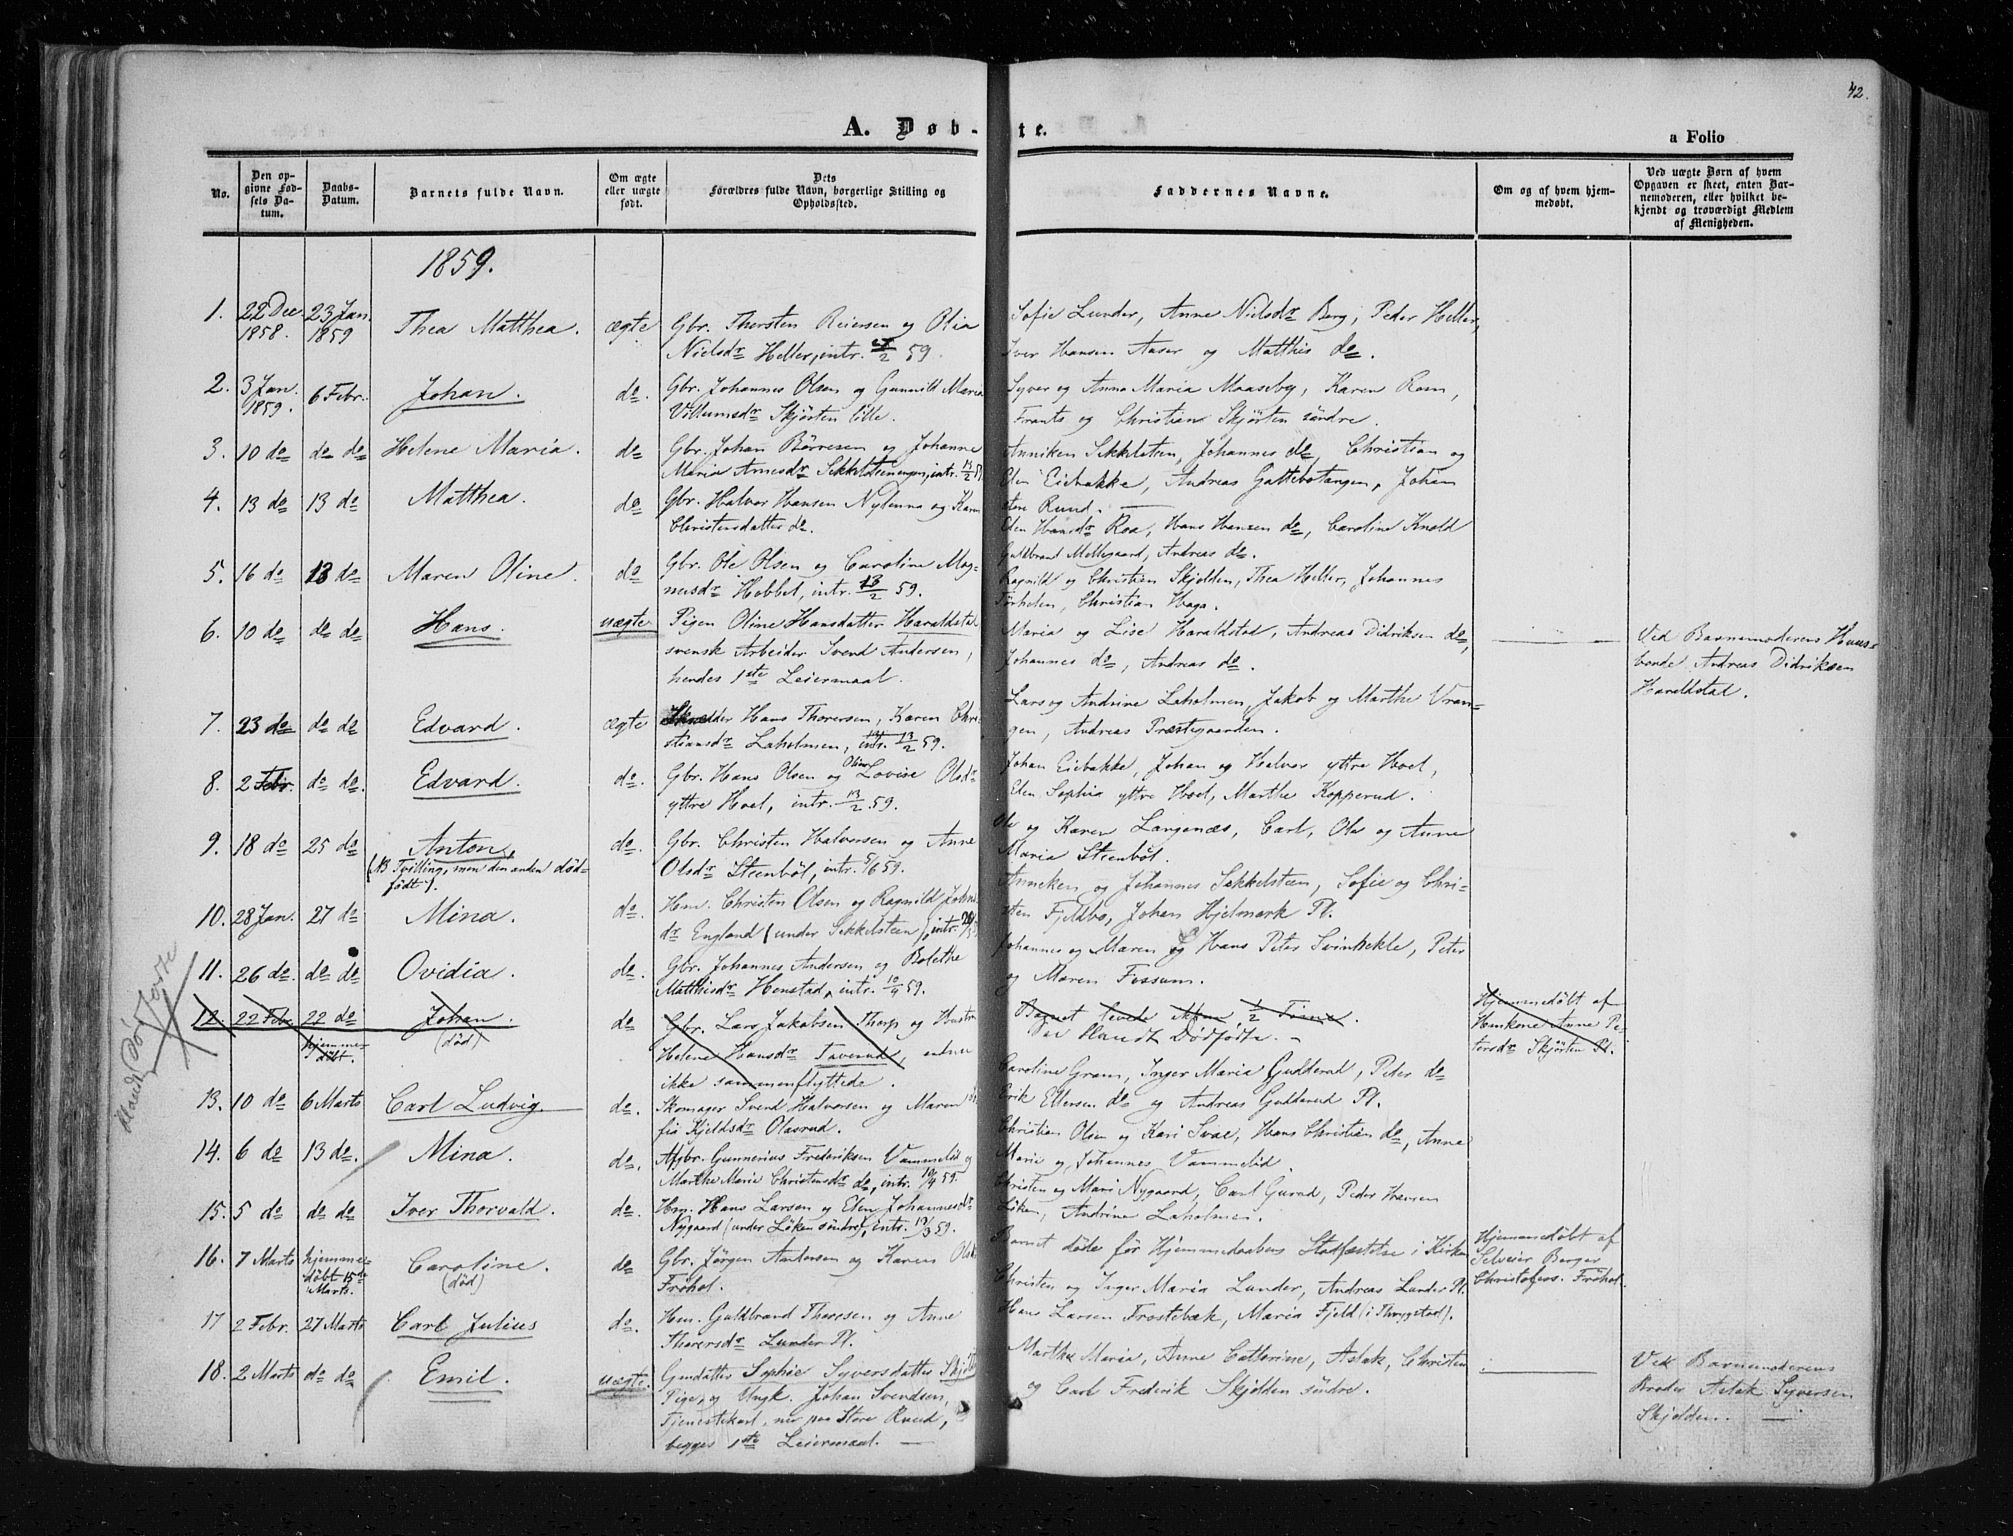 42.
A. Døb-te.
a Folio
No.
Den opgivne Fødsels Datum.
Daabs-Datum.
Barnets fulde Navn.
Om ægte eller uægte født.
Dets Forældres fulde Navn, borgerlige Stilling og Opholdssted.
Faddernes Navne.
Om og af hvem hjemmedøbt.
Ved uægte Børn af hvem Opgaven er skeet, enten Barnemoderen, eller hvilket bekjendt og troværdigt Medlem af Menigheden.
1859.
1. 22 Dec 1858. 23 Jan. 1859 Thea Matthea. ægte Gbr. Thorsten Reiersen og Olia
Nielsdr Heller, intr. 2 59.
Sofie Lunder, Anne Nielsdr Berg, Peder Heller,
Iver Hansen Aaser og Matthis do.
2. 3 Jan. 1859. 6 Febr. Johan. do. Gbr. Johannes Olsen og Gunnild Maria
Villumsdr Skjørten lille.
Syver og Anna Maria Maaseby, Karen Rom,
Frants og Christian Skjørten søndre.
3. 10 do do do Helene Maria. do Gbr. Johan Børresen og Johanne
Maria Arnesdr Sekkelsteenengen, intr. 13/2 59
Anniken Sekkelsten, Johannes do, Christian og
Elen Eiebakke, Andreas Gattebotangen, Johan
store Rund.
4. 13 do 13 do Matthea. do Gbr. Halvor Hansen Nylenna og Karen
Christensdatter do.
Elen Hansdr Roa, Hans Hansen do, Caroline Knold
Guldbrand Mellegaard, Andreas do.
5. 16 do 13 do Maren Oline. do Gbr. Ole Olsen og Caroline Mag-
nusdr Hobbel, intr. 13/2 59.
Ragnild og Christian Skjolden, Thea Heller, Johannes
Tørhelen, Christian Haga.
6. 10 do do do Hans. uægte Pigen Oline Hansdatter Haraldstad
svensk Arbeider Svend Andersen,
hendes 1ste Leiermaal.
Maria og Lise Haraldstad, Andreas Didriksen do,
Johannes do, Andreas do.
Ved Barnemoderens Huus-
bonde Andreas Didriksen
Haraldstad.
7. 23 do do do Edvard. ægte Skrædder Hans Thoresen, Karen Chri-
stiansdr Laholmen, intr. 13/2 59.
Lars og Andrine Laholmen, Jakob og Marthe Vran-
gen, Andreas Præstegaarden.
8. 2 Febr. do do. Edvard. do. Gbr. Hans Olsen og Oline Lovise Olsdr
yttre Hoel, intr. 13/2 59.
Johan Eiebakke, Johan og Halvor yttre Hoel,
Elen Sophia yttre Hoel, Marthe Kopperud.
9. 18 do 25 do Anton, do. Gbr. Christen Halvorsen og Anne
(NB Tvilling, men den anden død-
født).
Olsdr Steenbøl, intr. 5/6 59.
Ole og Karen Langenæs, Carl, Ole og Anne
Maria Steenbøl.
10. 28 Jan. 27 do Mina. do. Hm. Christen Olsen og Ragnild Johns
dr England (under Sekkelsteen), intr.
Anneken og Johannes Sekkelsteen, Sofie og Chri-
sten Fjeldbo, Johan Hjelmark Pl.
11. 26 do. do do Ovidia. do. Gbr. Johannes Andersen og Bolethe
Matthisdr Henstad, intr. 10/4 59.
Johannes og Maren og Hans Peter Svinkekle, Peter
og Maren Fossum.
12. 22 Febr. 22 do hjemme-
døbt. Johan.
(død) do Gbr. Lars Jakobsen Thorp og Hustru
Helene Hansdr Taverud, endnu
ikke sammenflyttede.
Barnet levede ikkun 1/2 Time.
Var Haudt Dødfødte.
Hjemmedøbt af
Huskone Anne Pe-
tersdr Skjørten Pl.
13. 10 do 6 Marts Carl Ludvig. do. Skomager Svend Halvorsen og Maren So-
fia Kjeldsdr Olasrud.
Caroline Gram, Inger Maria Gudderud, Peder do
Erik Ellersen do og Andreas Gudderud Pl.
14. 6 do 13 do. Mina. do. Afgbr. Gunnerius Frederiksen Vammelid og
Marthe Marie Christensdr do, intr. 10/4 59.
Christian Olsen og Kari Svae, Hans Christian do, Anne
Marie og Johannes Vammelid.
15. 5 do do do Iver Thorvald. do. Hm. Hans Larsen og Elen Johannesdr
Nygaard (under Løken søndre), intr. 13/3 59.
Christen og Mari Nygaard, Carl Gurud, Peder Hansen
Løken, Andrine Laholmen.
16. 7 Marts hjemme-
døbt 15de
Marts. Caroline.
(død) do Gbr. Jørgen Andersen og Karen Olsdr
Frøhol.
Barnet døde før Hjemmedaabens Stadfæstelse i Kirken
Hjemmedøbt af
Selveier Berger
Christofers. Frøhol.
17 2 Febr. 27 Marts Carl Julius do. Hm. Guldbrand Thoresen og Anne
Thorersdr Lunder Pl.
Christen og Inger Maria Lunder, Andreas Lunder Pl.
Hans Larsen Frostebæk, Maria Fjeld (i Thrygstad).
18. 2 Marts do do Emil. uægte. Gmdatter Sophie Syversdatter Skjolden
Pige, og Ungk. Johan Svendsen,
Tjenestekarl, nu paa Store Rund,
begges 1ste Leiermaal.
Marthe Maria, Anne Catherine, Aslak, Christen
og Carl Frederik Skjolden søndre.
Ved Barnemoderens
Broder Aslak Syversen
Skjolden.